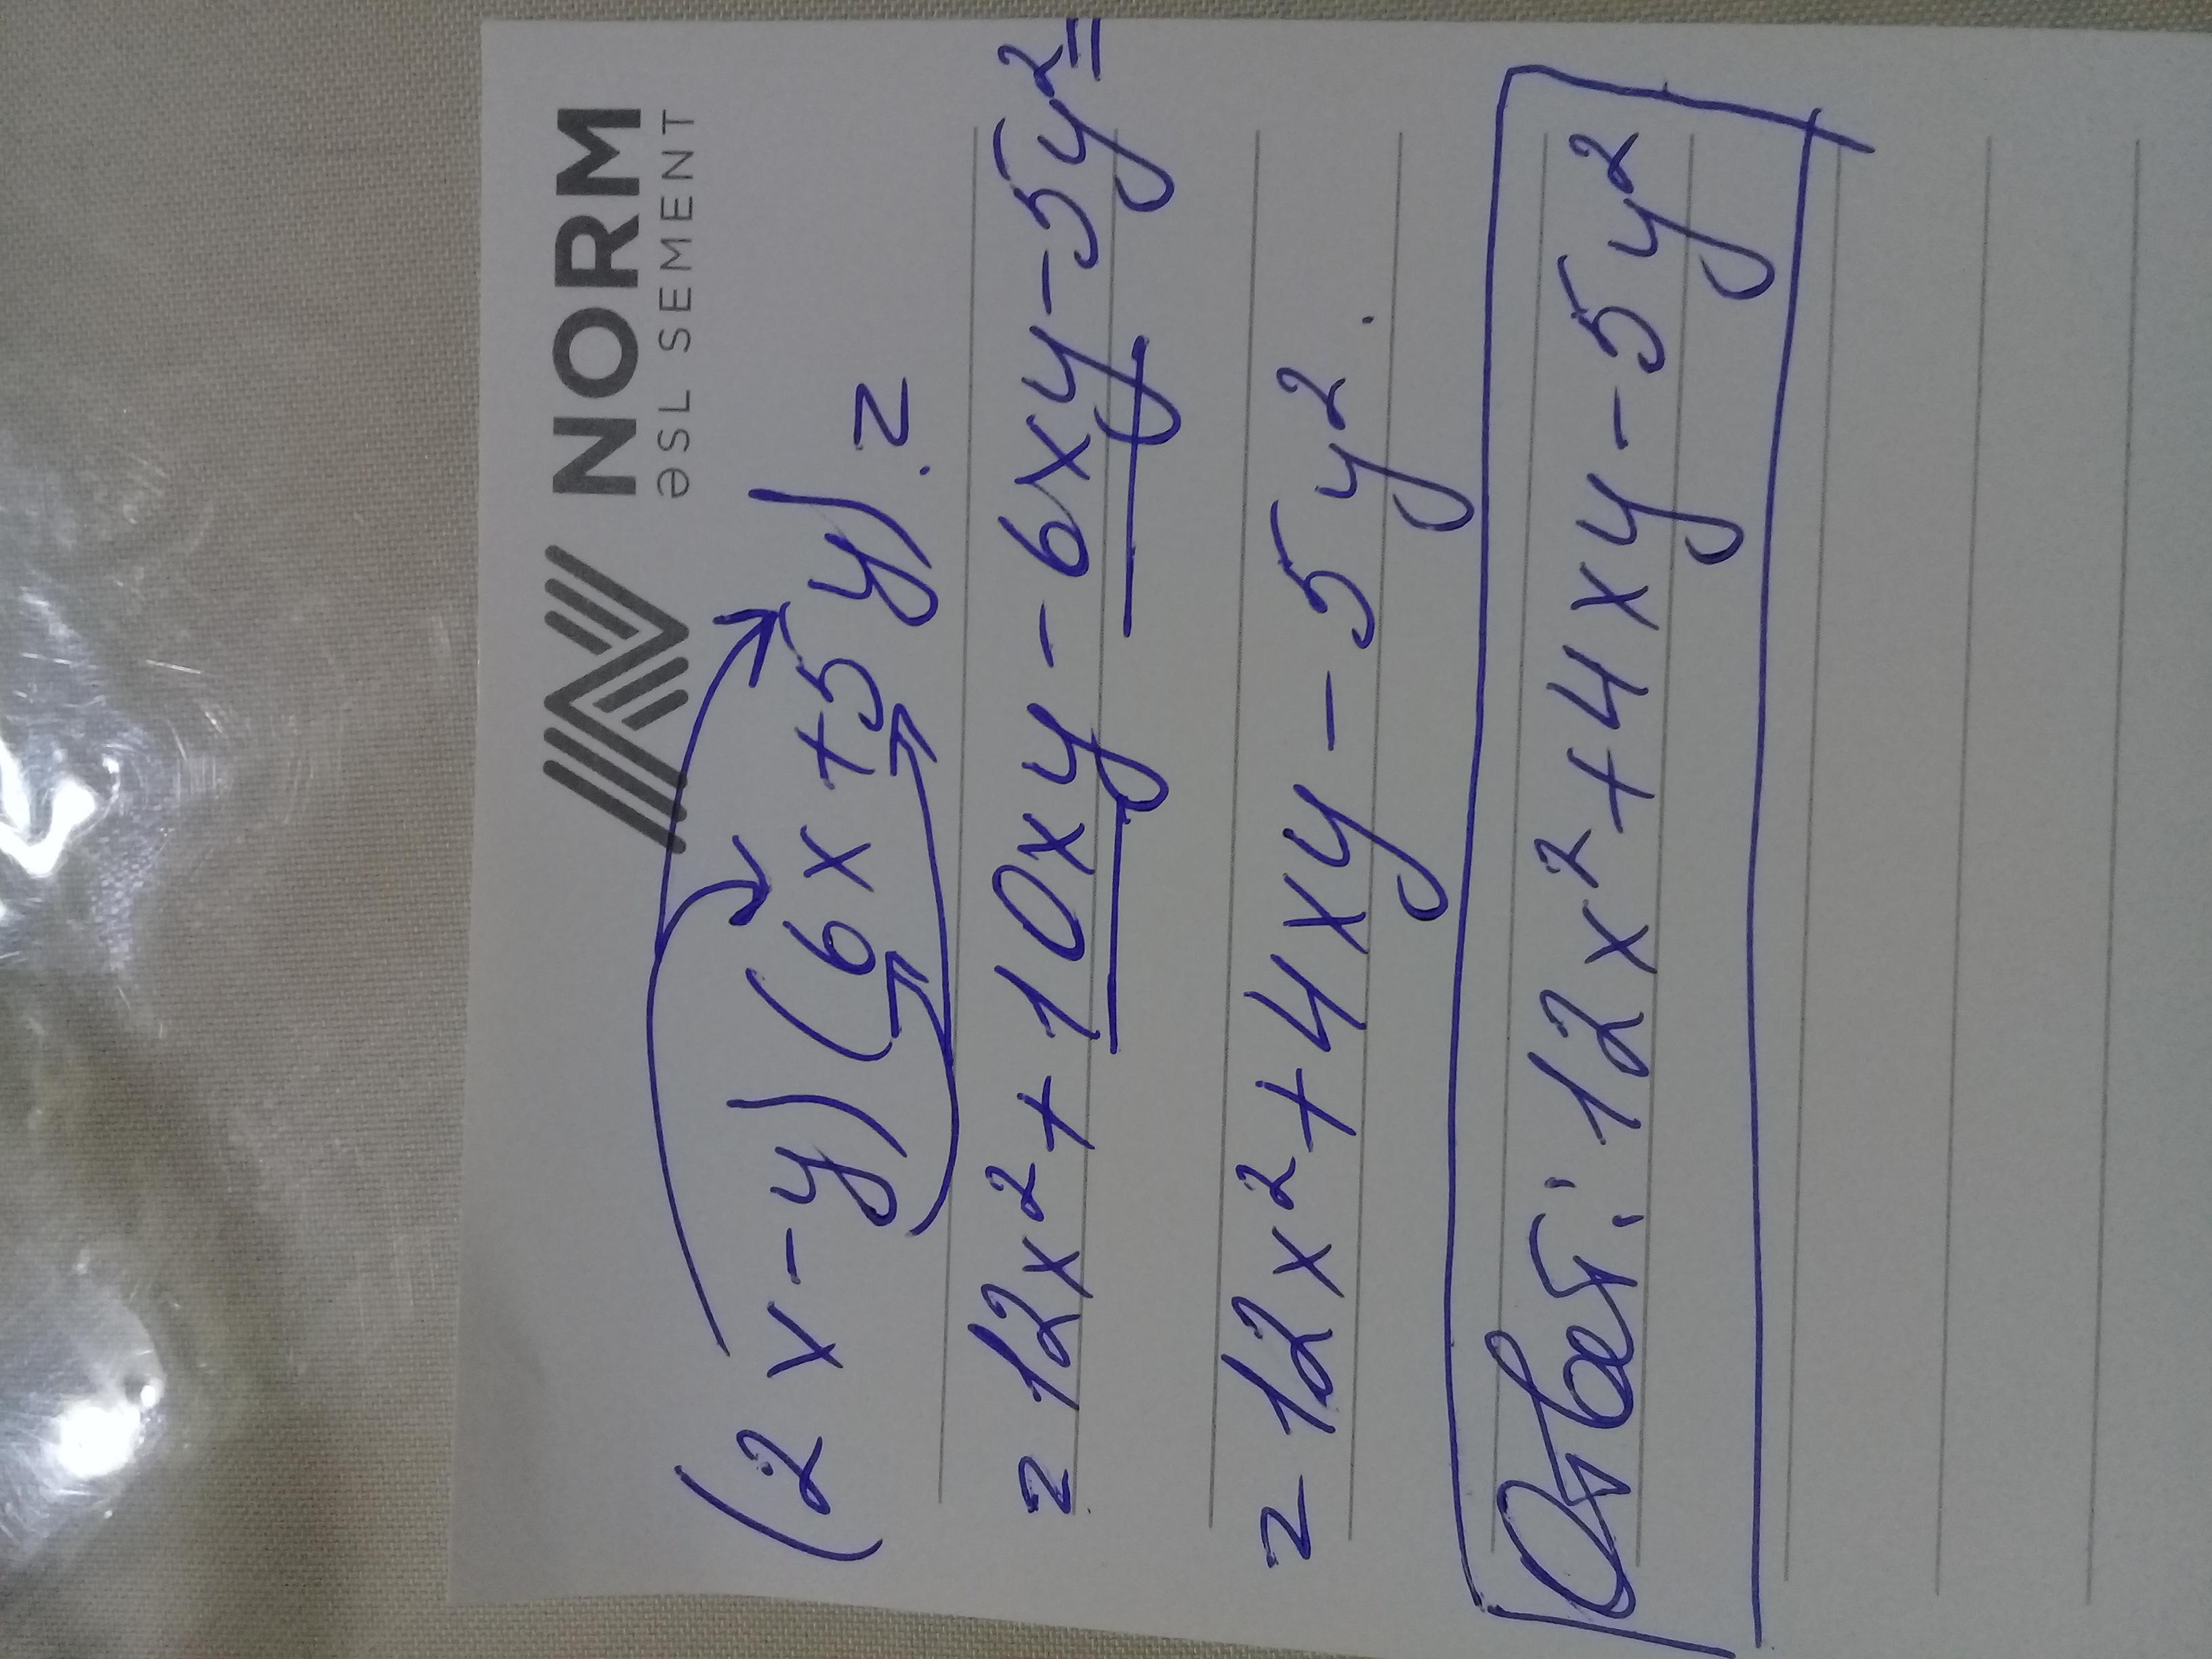 NORM
ƏSL SEMENT
(2x-y)(6x+5y)=
=12x²+10xy-6xy-5y²=
=12x²+4xy-5y².
Ответ: 12x²+4xy-5y²